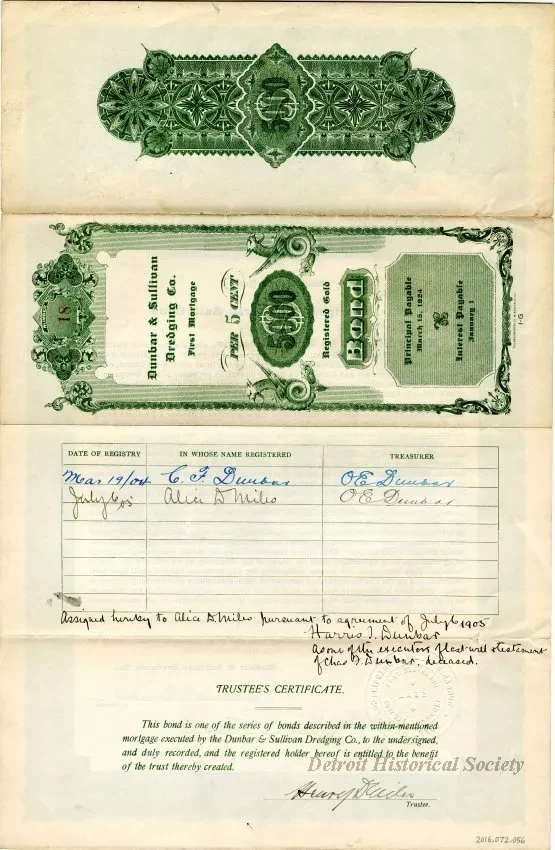 5000
18
Dunbar & Sullivan
Dredging Co.
First Mortgage
PER 5 CENT
5000
Registered Gold
Bond
Principal Payable
March 15, 1924
Interest Payable
January 1
DATE OF REGISTRY IN WHOSE NAME REGISTERED TREASURER
Mar 19/04 C. F. Dunbar O E Dunbar
July 6/05 Alice D Miles O E Dunbar
Assigned hereby to Alice D. Miles pursuant to agreement of July 6 1905
Harris T. Dunbar
As one of the executors of last will & testament
of Chas F. Dunbar, deceased.
TRUSTEE'S CERTIFICATE.
This bond is one of the series of bonds described in the within-mentioned
mortgage executed by the Dunbar & Sullivan Dredging Co., to the undersigned,
and duly recorded, and the registered holder hereof is entitled to the benefit
of the trust thereby created.
Detroit Historical Society
Henry D Miles
Trustee.
2016.072.056